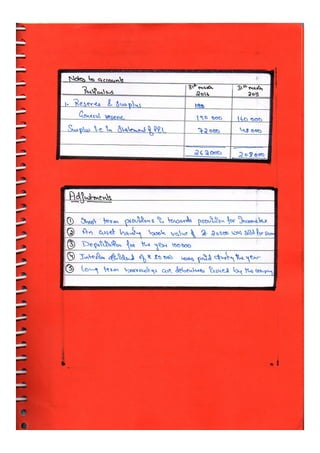 Notes to accounts
Particulars 31st march 2014 31st march
1. Reserves & Surplus
General reserve 190 000 160 000
Surplus i.e in Statement of P&L 72000 48 000
262000 208000
Adjustments
① Short term provisions is towards provision for Income tax
② An asset having book value of 24000 was sold for same
③ Depreciation for the year 100000
④ Interim dividend of ₹ 20 000 was paid during the year
⑤ Long term borrowings are debentures issued by the company